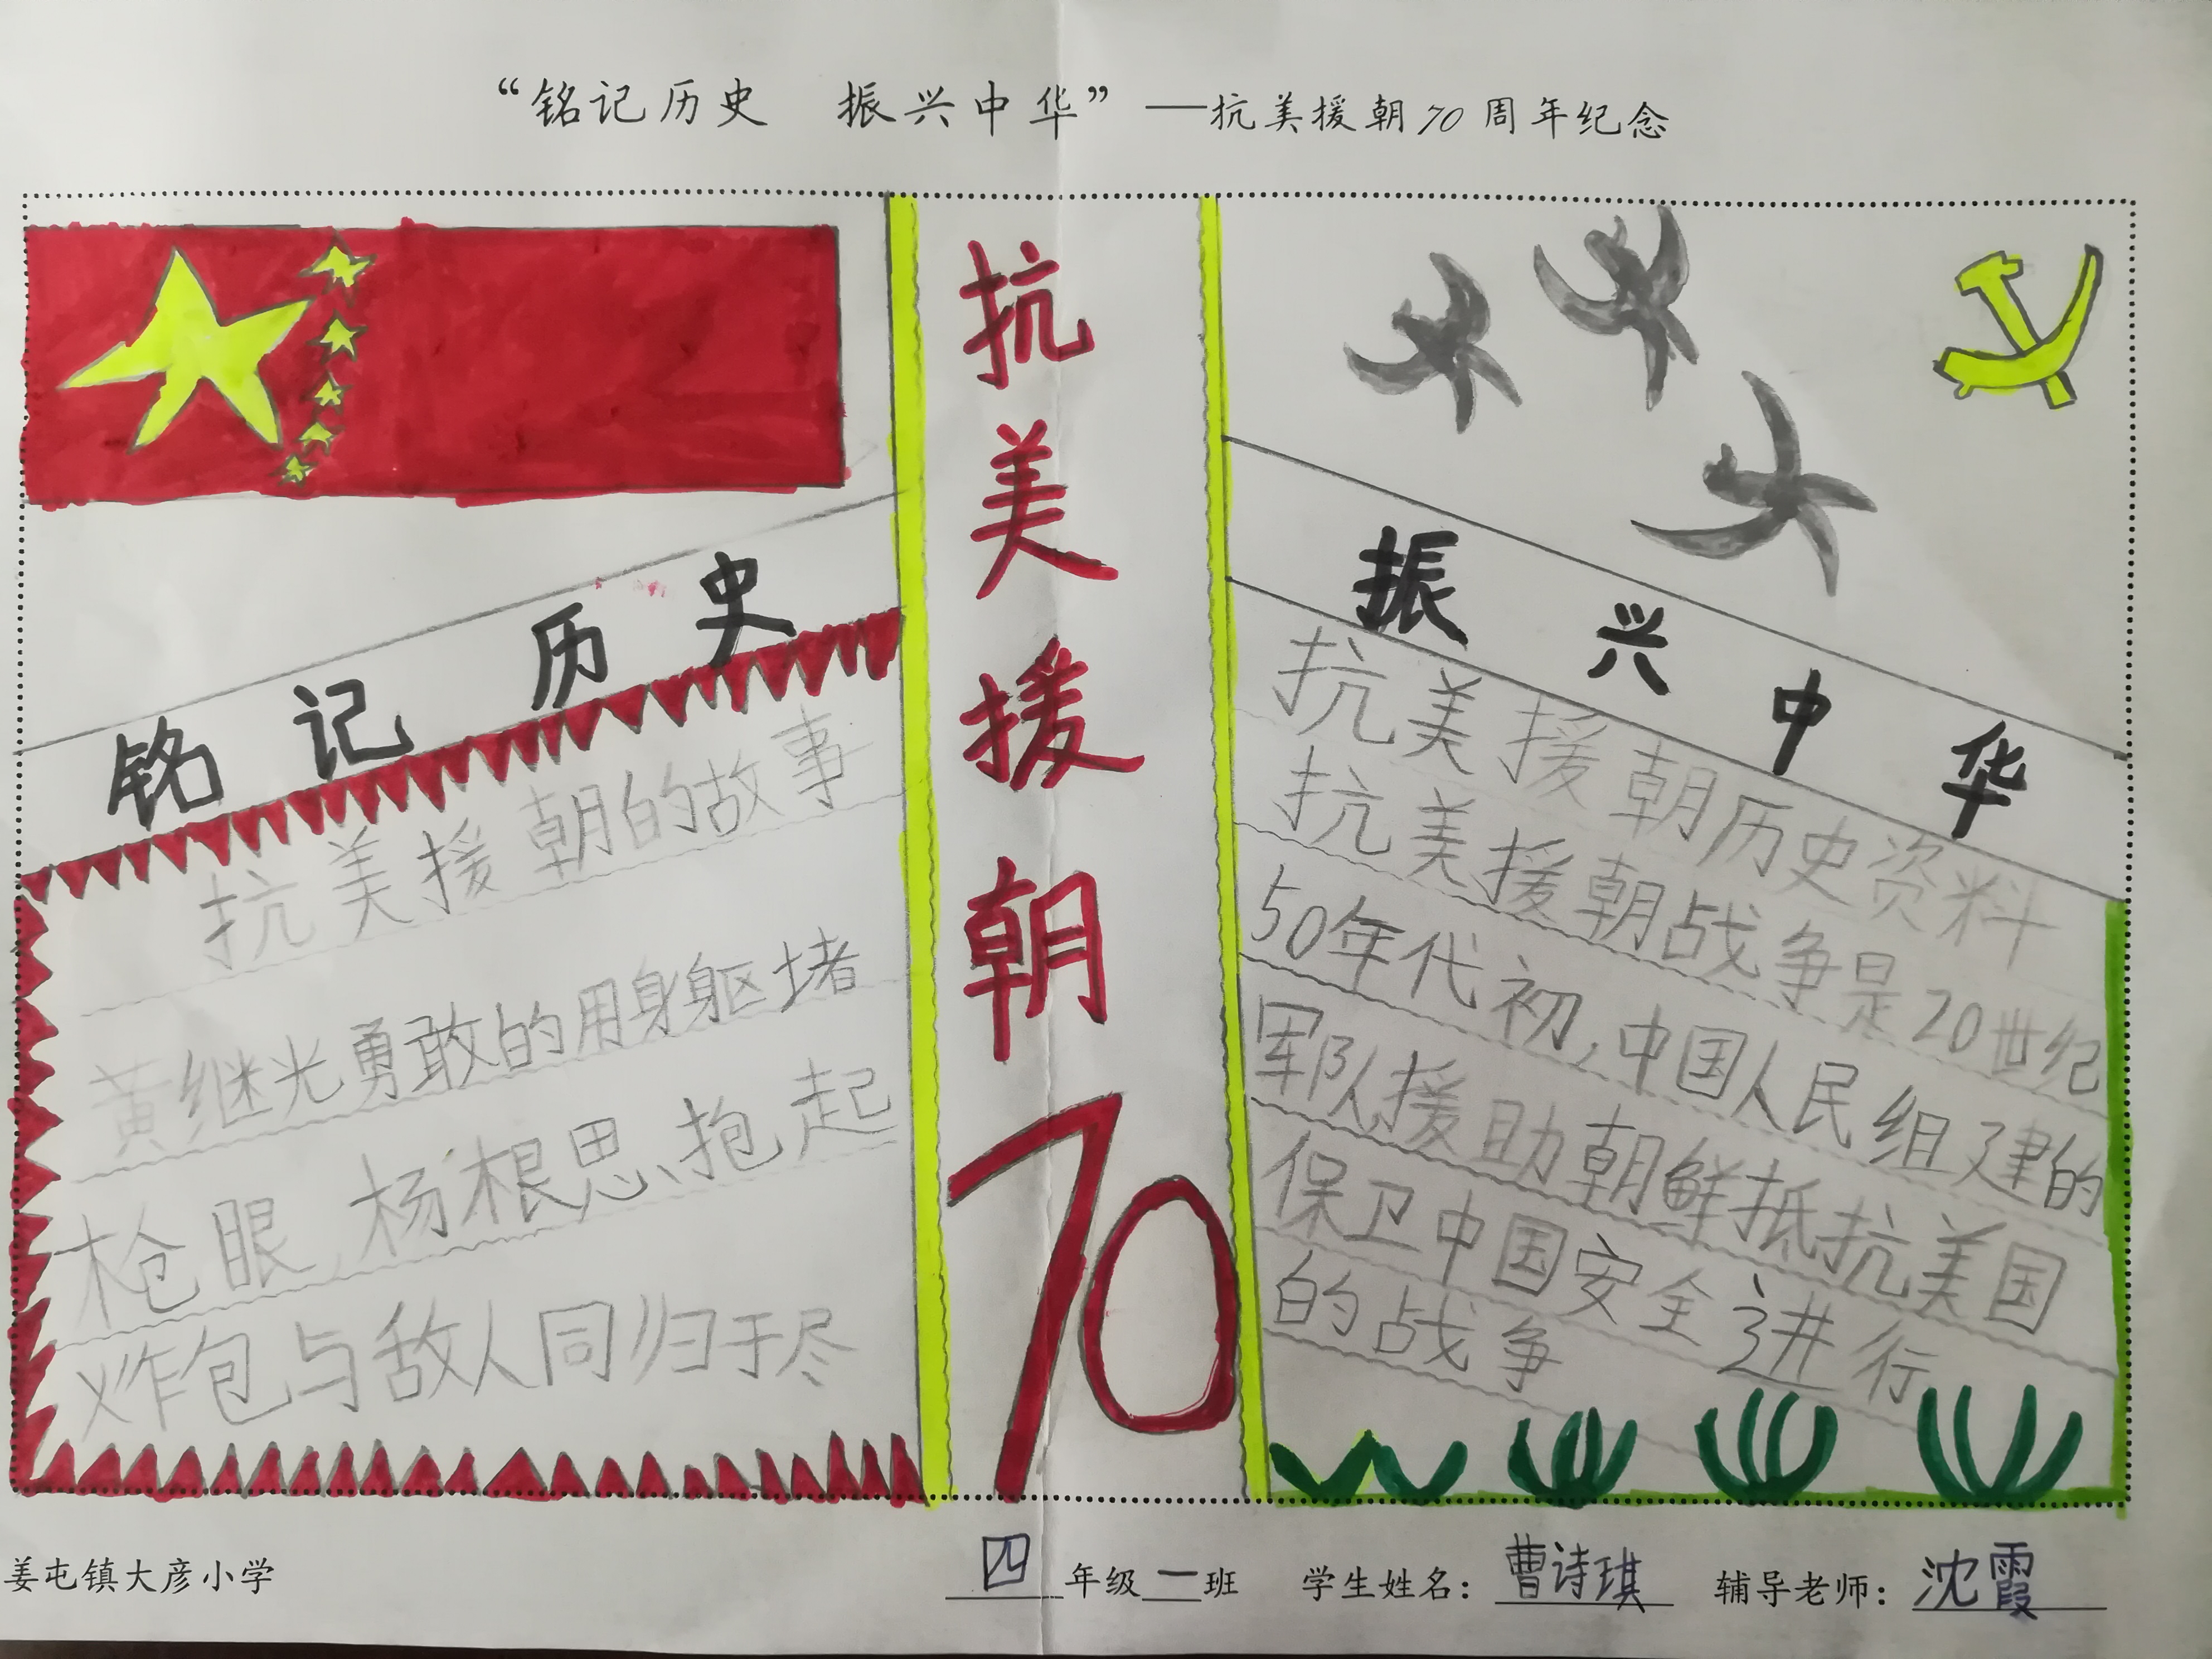 “铭记历史 振兴中华”——抗美援朝70周年纪念
铭记历史
抗美援朝的故事
黄继光勇敢的用身躯堵
枪眼、杨根思、抱起
炸包与敌人同归于尽
抗美援朝
70
振兴中华
抗美援朝历史资料
抗美援朝战争是20世纪
50年代初,中国人民组建的
军队援助朝鲜抵抗美国
保卫中国安全进行
的战争
姜屯镇大彦小学 四年级一班 学生姓名：曹诗琪 辅导老师：沈霞